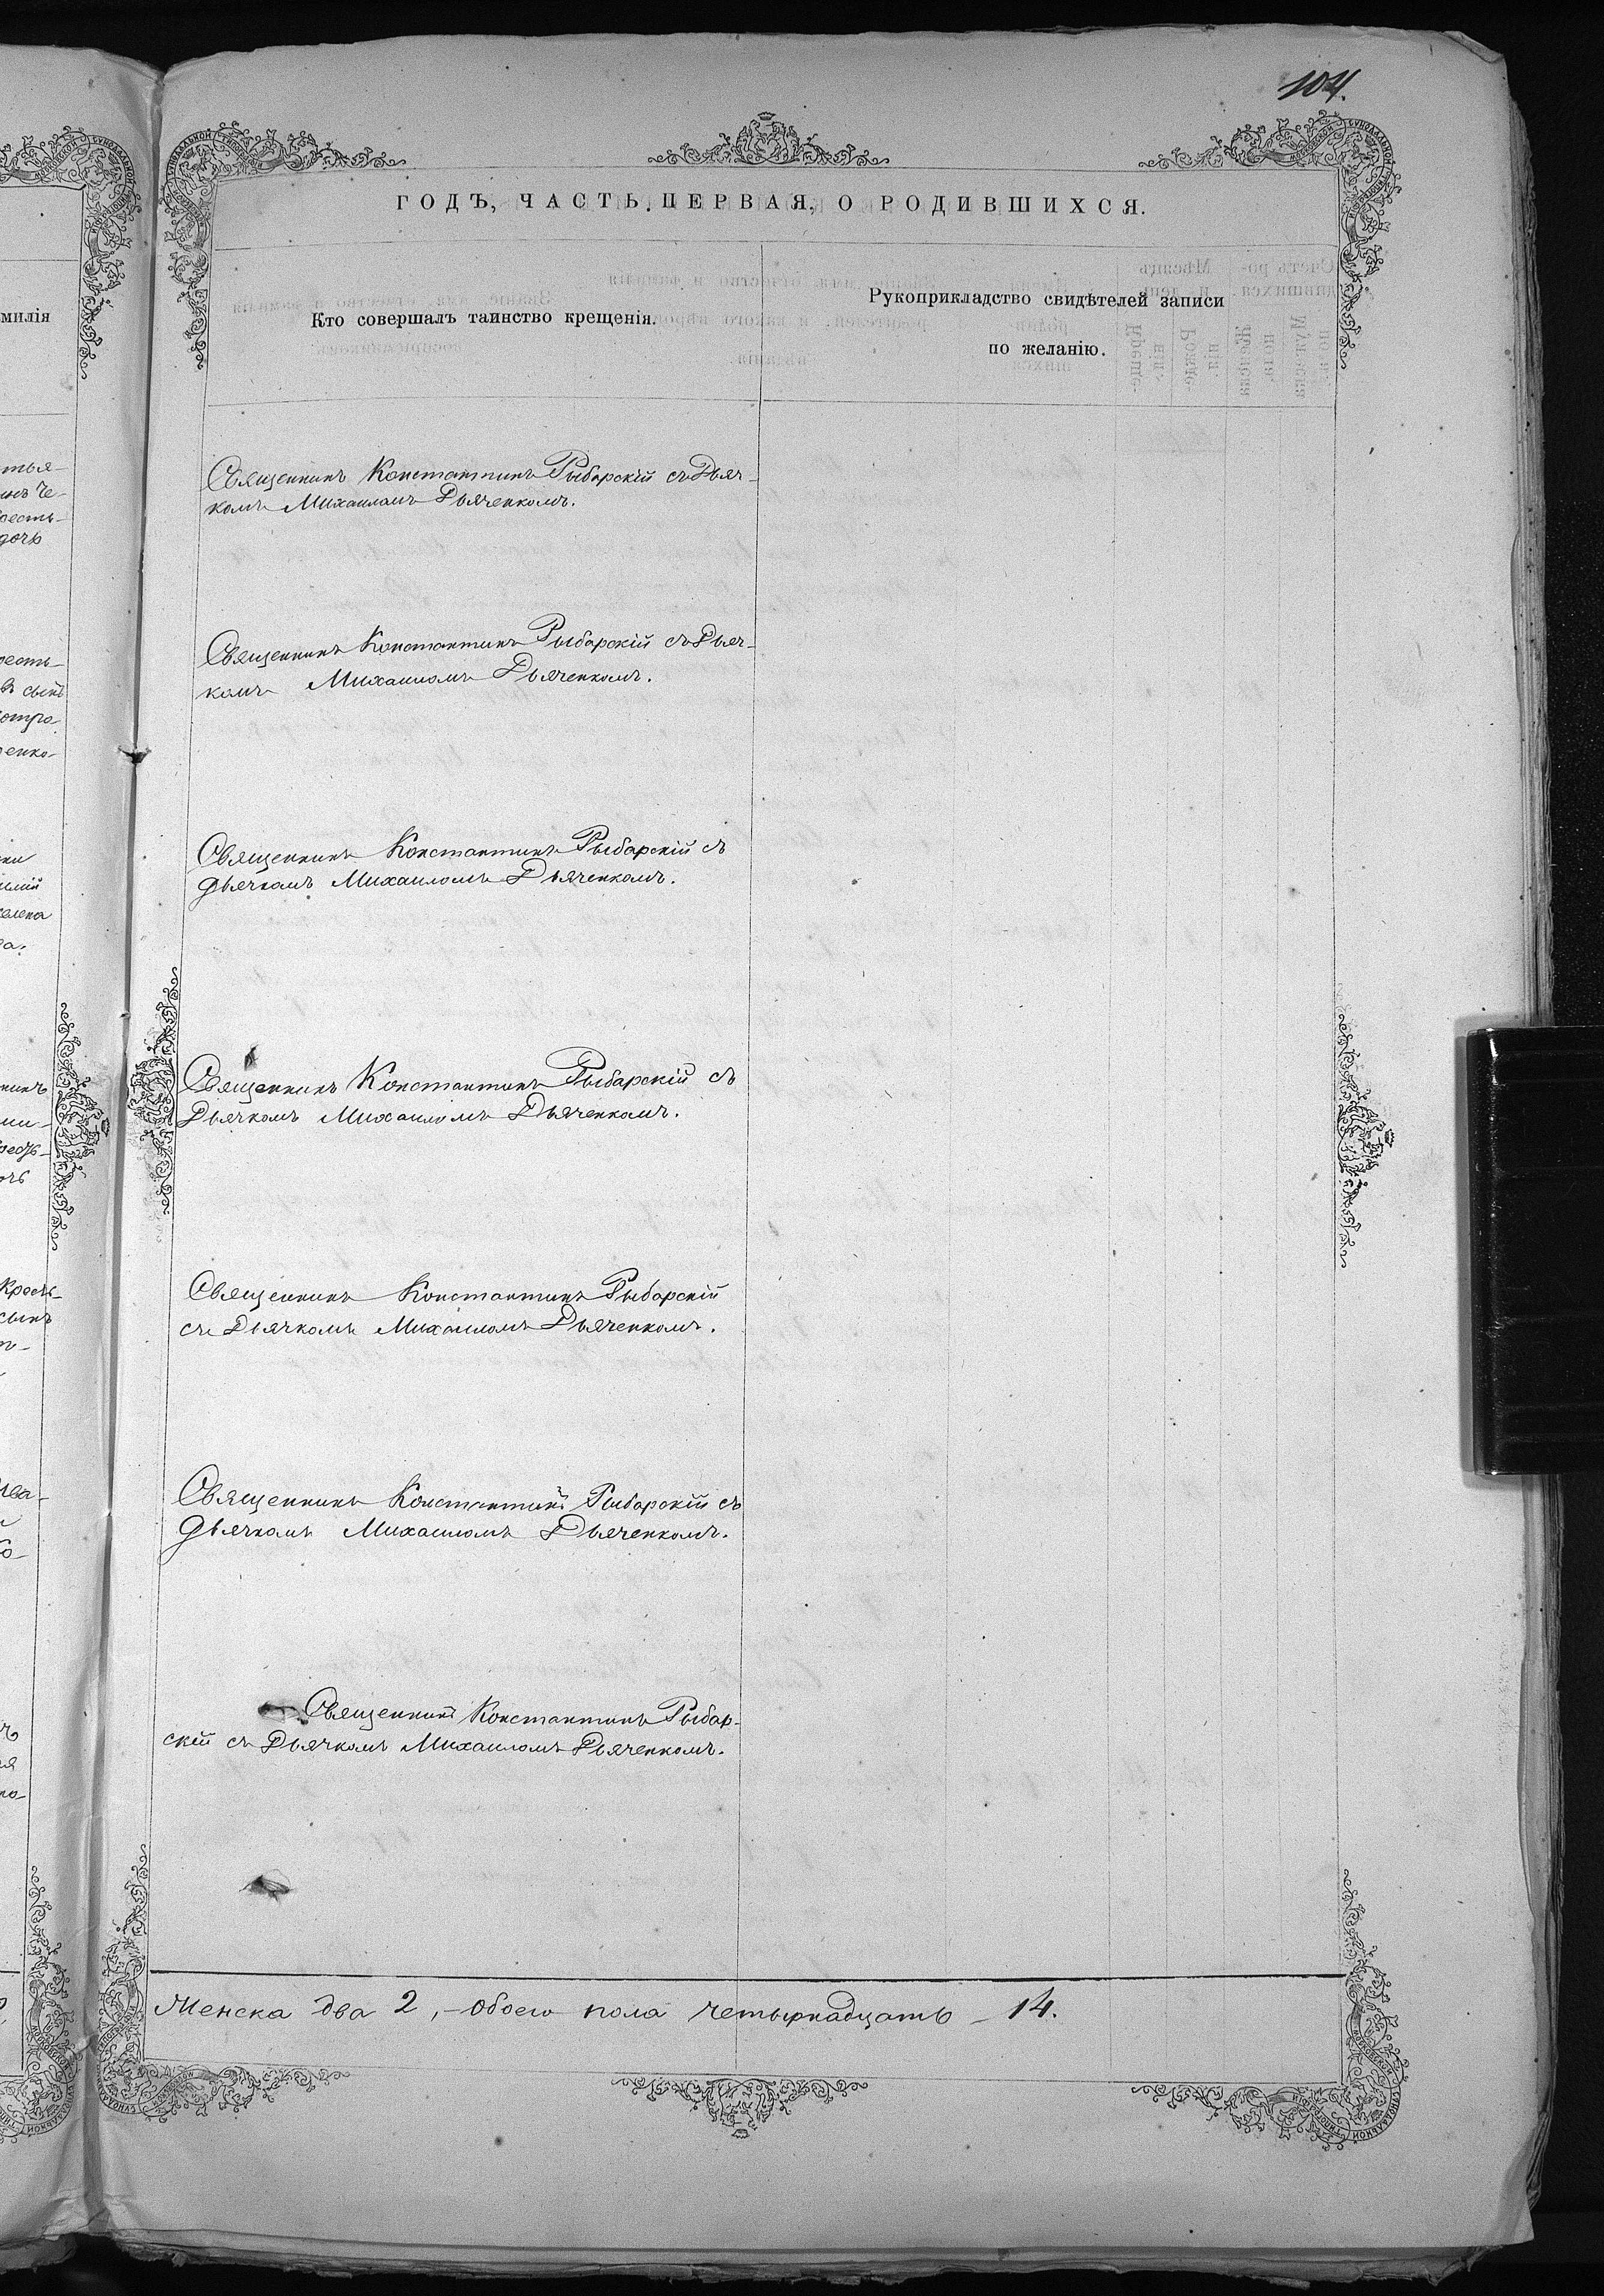 104.
ГОДЪ, ЧАСТЬ ПЕРВАЯ, О РОДИВШИХСЯ.
милія
Кто совершалъ таинство крещенія.
Рукоприкладство свидѣтелей записи
по желанію.
Священникъ Константинъ Рыбарскій съ Дьяч-
комъ Михаиломъ Дьяченкомъ.
Священникъ Константинъ Рыбарскій съ Дьяч-
комъ Михаиломъ Дьяченкомъ.
Священникъ Константинъ Рыбарскій съ
дьячкомъ Михаиломъ Дьяченкомъ.
Священникъ Константинъ Рыбарскій съ
Дьячкомъ Михаиломъ Дьяченкомъ.
Священникъ Константинъ Рыбарскій
съ Дьячкомъ Михаиломъ Дьяченкомъ.
Священникъ Константинъ Рыбарскій съ
дьячкомъ Михаиломъ Дьяченкомъ.
Священникъ Константинъ Рыбар-
скій съ Дьячкомъ Михаиломъ Дьяченкомъ.
Женска два 2, - Обоего пола четырнадцать - 14.